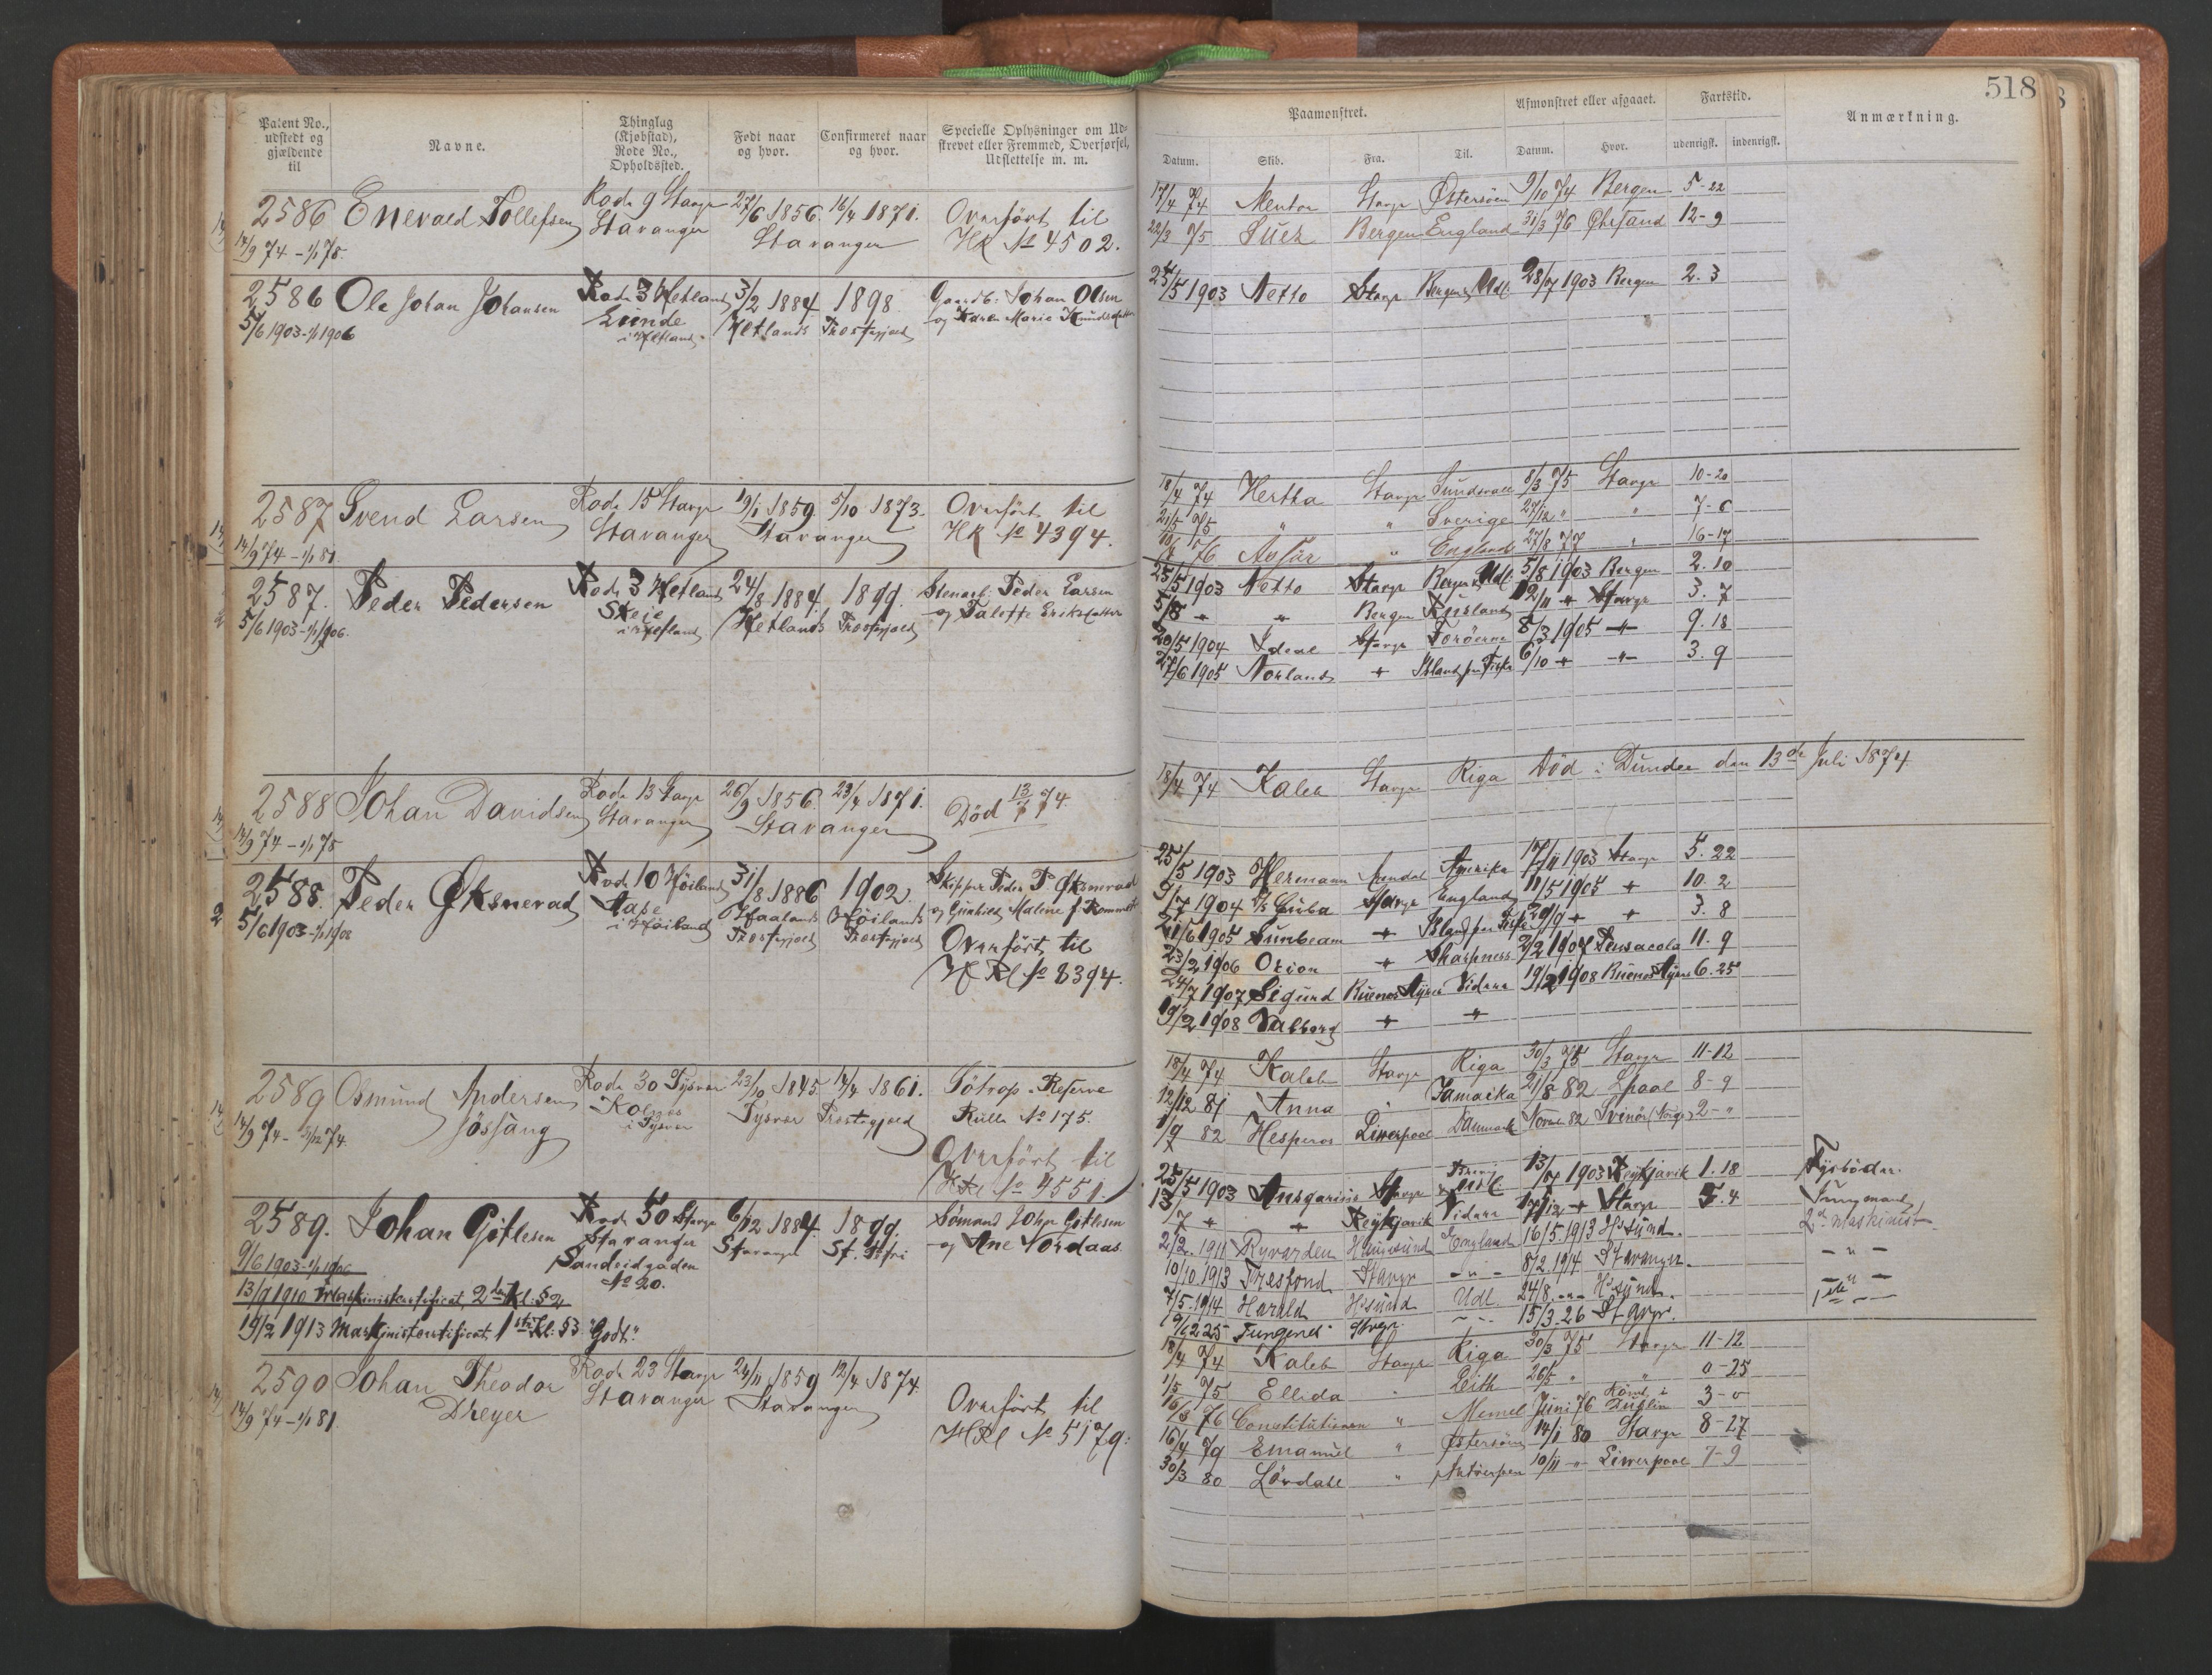 518
Patent No.,
udstedt og
gjældende
til
Navne.
Thinglag
(Kjøbstad),
Rode No.,
Opholdssted.
Født naar
og hvor.
Confirmeret naar
og hvor.
Specielle Oplysninger om Ud-
skrevet eller Fremmed, Overførsel,
Udslettelse m. m.
2586 Enevald Tollefsen Rode 9 Stavgr 27/6 1856. 16/4 1871. Overført til
14/9 74 - 1/1 78. Stavanger Stavanger HR No 4502.
2586 Ole Johan Johansen Rode 3 Hetland 3/2 1884 1898 Gaardb. Johan Olsen
5/6 1903-1/1 1906 Lunde Hetlands Præstegjæld og Karen Marie Knudsdatter
i Hetland
2587 Svend Larsen Rode 15 Stavgr 19/1 1859 5/10 1873. Overført til
14/9 74 - 1/1 81. Stavanger Stavanger HR No 4394.
2587. Peder Pedersen Rode 3 Hetland 24/8 1884. 1899. Stenarb. Peder Larsen
5/6 1903-1/1 1906. Skeie Hetlands Præstegjæld og Taletta Eriksdatter
i Hetland
2588 Johan Davidsen Rode 13 Stavgr 26/9 1856. 23/4 1871. Død 13/7 74.
14/9 74 - 1/1 78 Stavanger Stavanger
2588. Peder Øksnevad Rode 10 Høiland 31/8 1886 1902. Skipper Peder P Øksnevad
5/6 1903-1/1 1908 i Høiland Haaland Høilands og Gunhild Maline f. Rommet
Præstegjæld Præstegjæld Overført til
H Rl No 8394.
2589 Osmund Andersen Rode 30 Tysvær 23/10 1845. 14/4 1861. Søtrop. Reserve
14/9 74 - 31/12 74. Jøsang i Tysvær Tysvær Præstegjæld Rulle No 175.
Overført til
HRl No 4551.
2589. Johan Gitlesen Rode 50 Stavgr 6/12 1884. 1899. Sømand Johan Gitlesen
9/6 1903-1/1 1906 Stavanger Stavanger St. Petri og Ane Nordaas
13/9 1910 Maskinistcertificat 2den Kl. § 2 Sandeidgaden
No 20.
19/2 1913 Maskinistcertificat 1ste Kl. § 3 "Godt."
2590 Johan Theodor Rode 23 Stavgr 24/11 1859 12/4 1874. Overført til
14/9 74 - 1/1 81. Dreyer Stavanger Stavanger HRl No 5179.
Paamønstret.
Afmønstret eller afgaaet.
Fartstid.
Anmærkning.
Datum. Skib. Fra. Til. Datum. Hvor. udenrigsk. indenrigsk.
17/4 74 Mentor Stavgr Østersøen 9/10 74 Bergen 5-22
22/3 75 Suez Bergen England 31/3 76 Chrsand 12-9
25/5 1903 Netto Stavgr Bergen & Udl. 28/7 1903 Bergen 2. 3
18/4 74 Hertha Stavgr Sundsvall 8/3 75 Stavgr 10-20
21/5 75 " " Sverige 27/12 " " 7-6
10/4 76 " England 27/8 77 " 16-17
25/5 1903 Netto Stavgr Bergen & Udl. 5/8 1903 Bergen 2. 10
5/8 " " Bergen Rusland 12/11 " Stavgr 3. 7
20/5 1904 Ideal Stavgr Færøerne 8/3 1905 " 9. 18
27/6 1905 Norland " Island paa Fiske 6/10 " " 3. 9
18/4 74 Kaleb Stavgr Riga Død i Dundee den 13de Juli 1874.
25/5 1903 Hermann Arendal Amerika 17/11 1903 Stavgr 5. 22
9/7 1904 Cuba Stavgr England 11/5 1905 " 10. 2
21/6 1905 Sunbeam " Island paa Fiske 29/9 " " 3. 8
23/2 1906 Orion " Sharpness 2/2 1907 Pensacola 11. 9
24/7 1907 Sigurd Buenos Ayres Videre 19/2 1908 Buenos Ayres 6. 25
19/2 1908 Valborg " "
18/4 74 Kaleb Stavgr Riga 30/3 75 Stavgr 11-12
12/12 81 Anna " Jamaika 21/8 82 Lpool 8-9
1/9 82 Hesperos Liverpool Danmark Novem 82 Svinør (Norge) 2-"
25/5 1903 Ansgarius Stavgr & Udl. 13/7 1903 Reykjavik 1. 18 Fyrbøder.
13/7 " " Reykjavik Videre 17/12 " Stavgr 5. 4 Jungmand
2/2. 1911 Ryvarden Haugesund England 16/5. 1913 H.sund. 2d Maskinist
10/10. 1913 Stavgr - " - 8/2. 1914 Stavanger. - " -
7/5. 1914 Harald H.sund Udl 24/8. - " - H.sund. - " -
19/12 25 Stvgr. - " - 15/3. 26 Stavgr. 1ste - " -
18/4 74 Kaleb Stavgr Riga 30/3 75 Stavgr 11-12
1/5 75 Ellida " Leith 26/5 " " 0-25
16/3 76 Constitutionen " Memel Juni 76 Rømt i Dublin 3-0
16/4 79 Emanuel " Østersøen 14/1 80 Stavgr 8-27
30/3 80 Lövdahl " Antverpen 10/11 " Liverpool 7-9